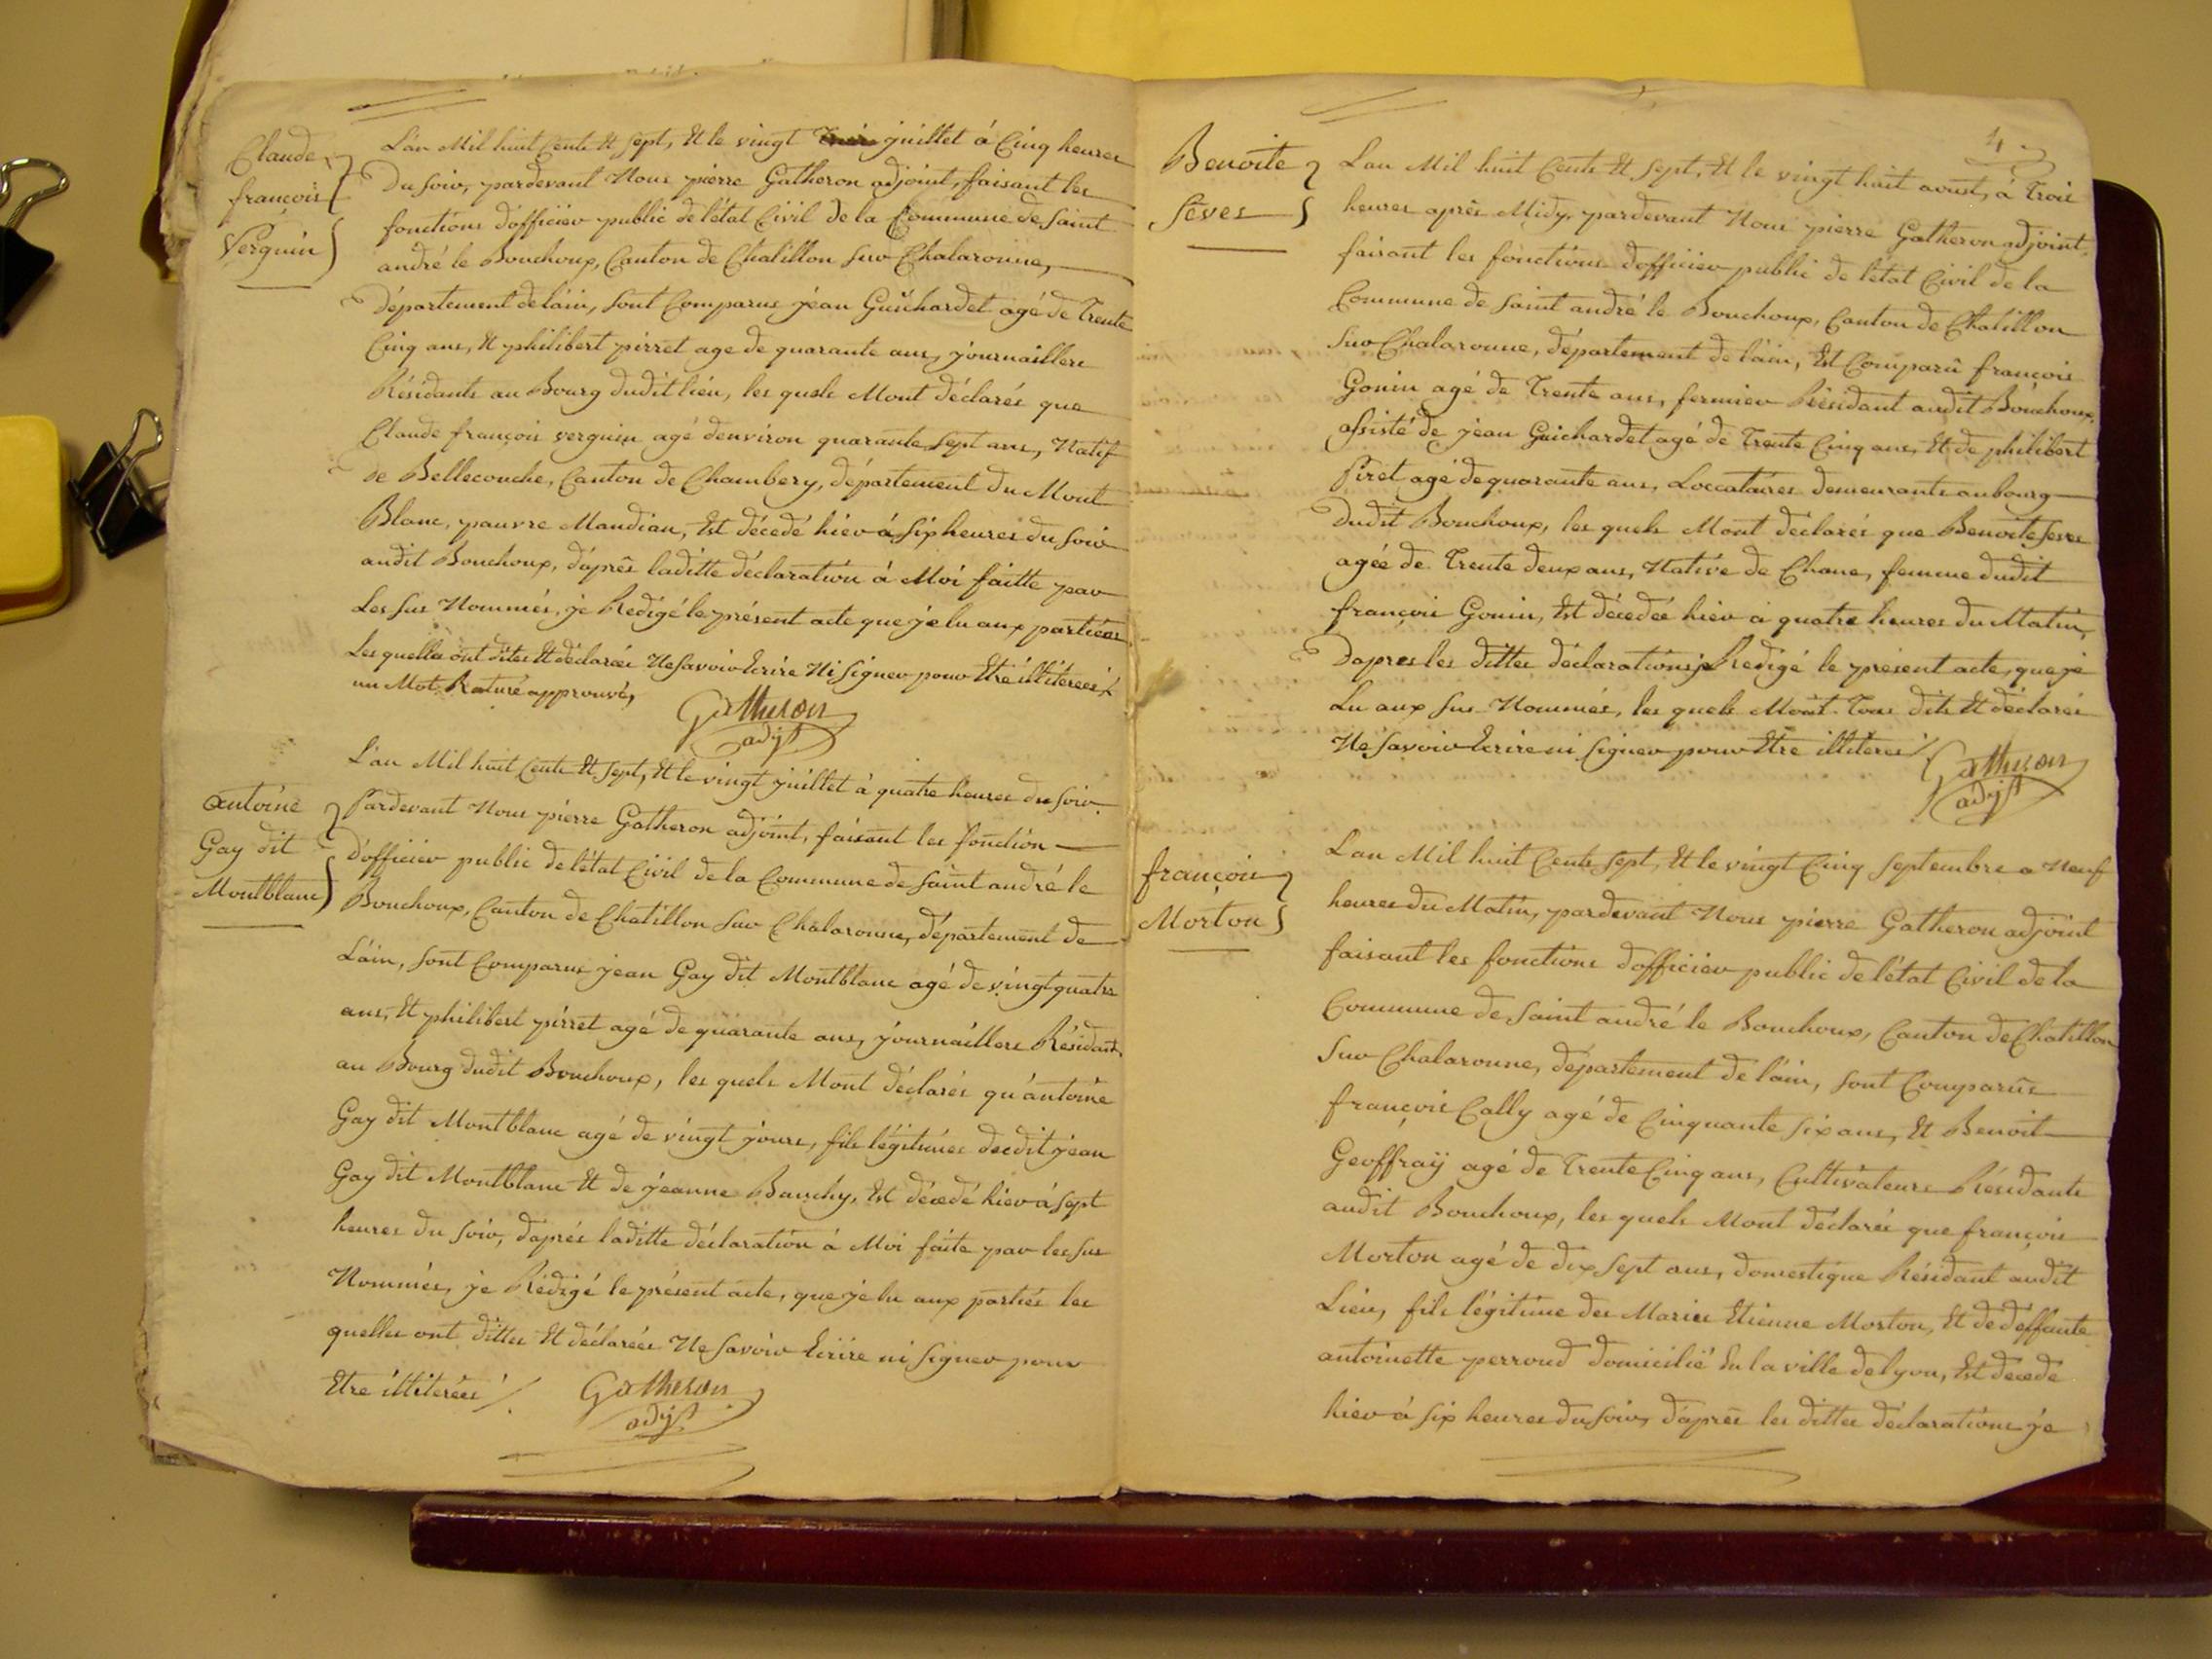 Claude
françois
Verguin
L'an Mil huit Cents Et sept, Et le vingt juillet à Cinq heures
Du soir, pardevant Nous pierre Gatheron adjoint, faisant les
fonctions d'officier public de l'état Civil de la Commune de Saint
andré le Bouchoux, Canton de Chatillon sur Chalaronne,
Département de l'ain, sont Comparus jean Guichardet agé de Trente
Cinq ans, Et philibert pirret age de quarante ans, journaillers
Résidants au Bourg dudit lieu, les quels Mont déclarés que
Claude françois verguin agé denviron quarante sept ans, Natif
de Belleconche, Canton de Chambery, département du Mont
Blanc, pauvre Mandian, Est décedé hier à six heures du soir
audit Bouchoux, d'après laditte déclaration à Moi faitte par
Les sus Nommés, je Redigé le présent acte que jé lu aux partiées
Les quelles ont dites Et déclarées Ne savoir Ecrire Ni signer pour Etre illiterées
un Mot Raturé approuvé,
Gatheron
adjt
antoine
Gay dit
Montblanc
L'an Mil huit Cents Et sept, Et le vingt juillet à quatre heures du soir
Pardevant Nous pierre Gatheron adjoint, faisant les fonction
D'officier public de l'état Civil de la Commune de Saint andré le
Bouchoux, Canton de Chatillon sur Chalaronne, département de
L'ain, sont Comparus jean Gay dit Montblanc agé de vingt quatre
ans, Et philibert pirret agé de quarante ans, journaillers Résidant
au Bourg dudit Bouchoux, les quels Mont déclarés qu'antoine
Gay dit Montblanc agé de vingt jours, fils légitimes dudit jean
Gay dit Montblanc Et de jeanne Bauchy, Est décedé hier à sept
heures du soir, d'après laditte déclaration à Moi faite par les sus
Nommés, je Rédigé le présent acte, que jé lu aux parties les
quelles ont dittes Et déclarées Ne savoir Ecrire ni signer pour
Etre illiterées
Gatheron
adjt
4
Benoite
Seves
L'an Mil huit Cents Et sept, Et le vingt huit aoust, à Trois
heures après Midy, pardevant Nous pierre Gatheron adjoint,
faisant les fonctions d'officier public de l'état Civil de la
Commune de Saint andré le Bouchoux, Canton de Chatillon
sur Chalaronne, département de l'ain, Est Comparû françois
Gonin agé de Trente ans, fermier Résidant audit Bouchoux,
assisté de jean Guichardet agé de Trente Cinq ans, Et de philibert
Piret agé de quarante ans, Loccataires demeurants au bourg
Dudit Bouchoux, les quels Mont déclarés que Benoite Seves
agée de Trente deux ans, Native de Chane, femme dudit
françois Gonin, Est décedée hier à quatre heures du Matin,
Dapres les dittes déclarations je Redigé le présent acte, que jé
Lu aux sus Nommés, les quels Mont Tous dits Et déclarés
Ne savoir Ecrire ni signer pour Etre illiterés
Gatheron
adjt
françois
Morton
L'an Mil huit Cents sept, Et le vingt Cinq septembre a Neuf
heures du Matin, pardevant Nous pierre Gatheron adjoint
faisant les fonctions d'officier public de l'état Civil de la
Commune de Saint andré le Bouchoux, Canton de Chatillon
sur Chalaronne, département de l'ain, sont Comparûs
françois Cally agé de Cinquante six ans, Et Benoit
Geoffraÿ agé de Trente Cinq ans, Cultivateurs Résidants
audit Bouchoux, les quels Mont déclarés que françois
Morton agé de dix sept ans, domestique Résidant audit
Lieu, fils légitime des Maries Etienne Morton, Et de deffunte
antoinette perroud domicilié En la ville de lyon, Est décedé
hier à six heures du soir, d'après les dittes déclarations je